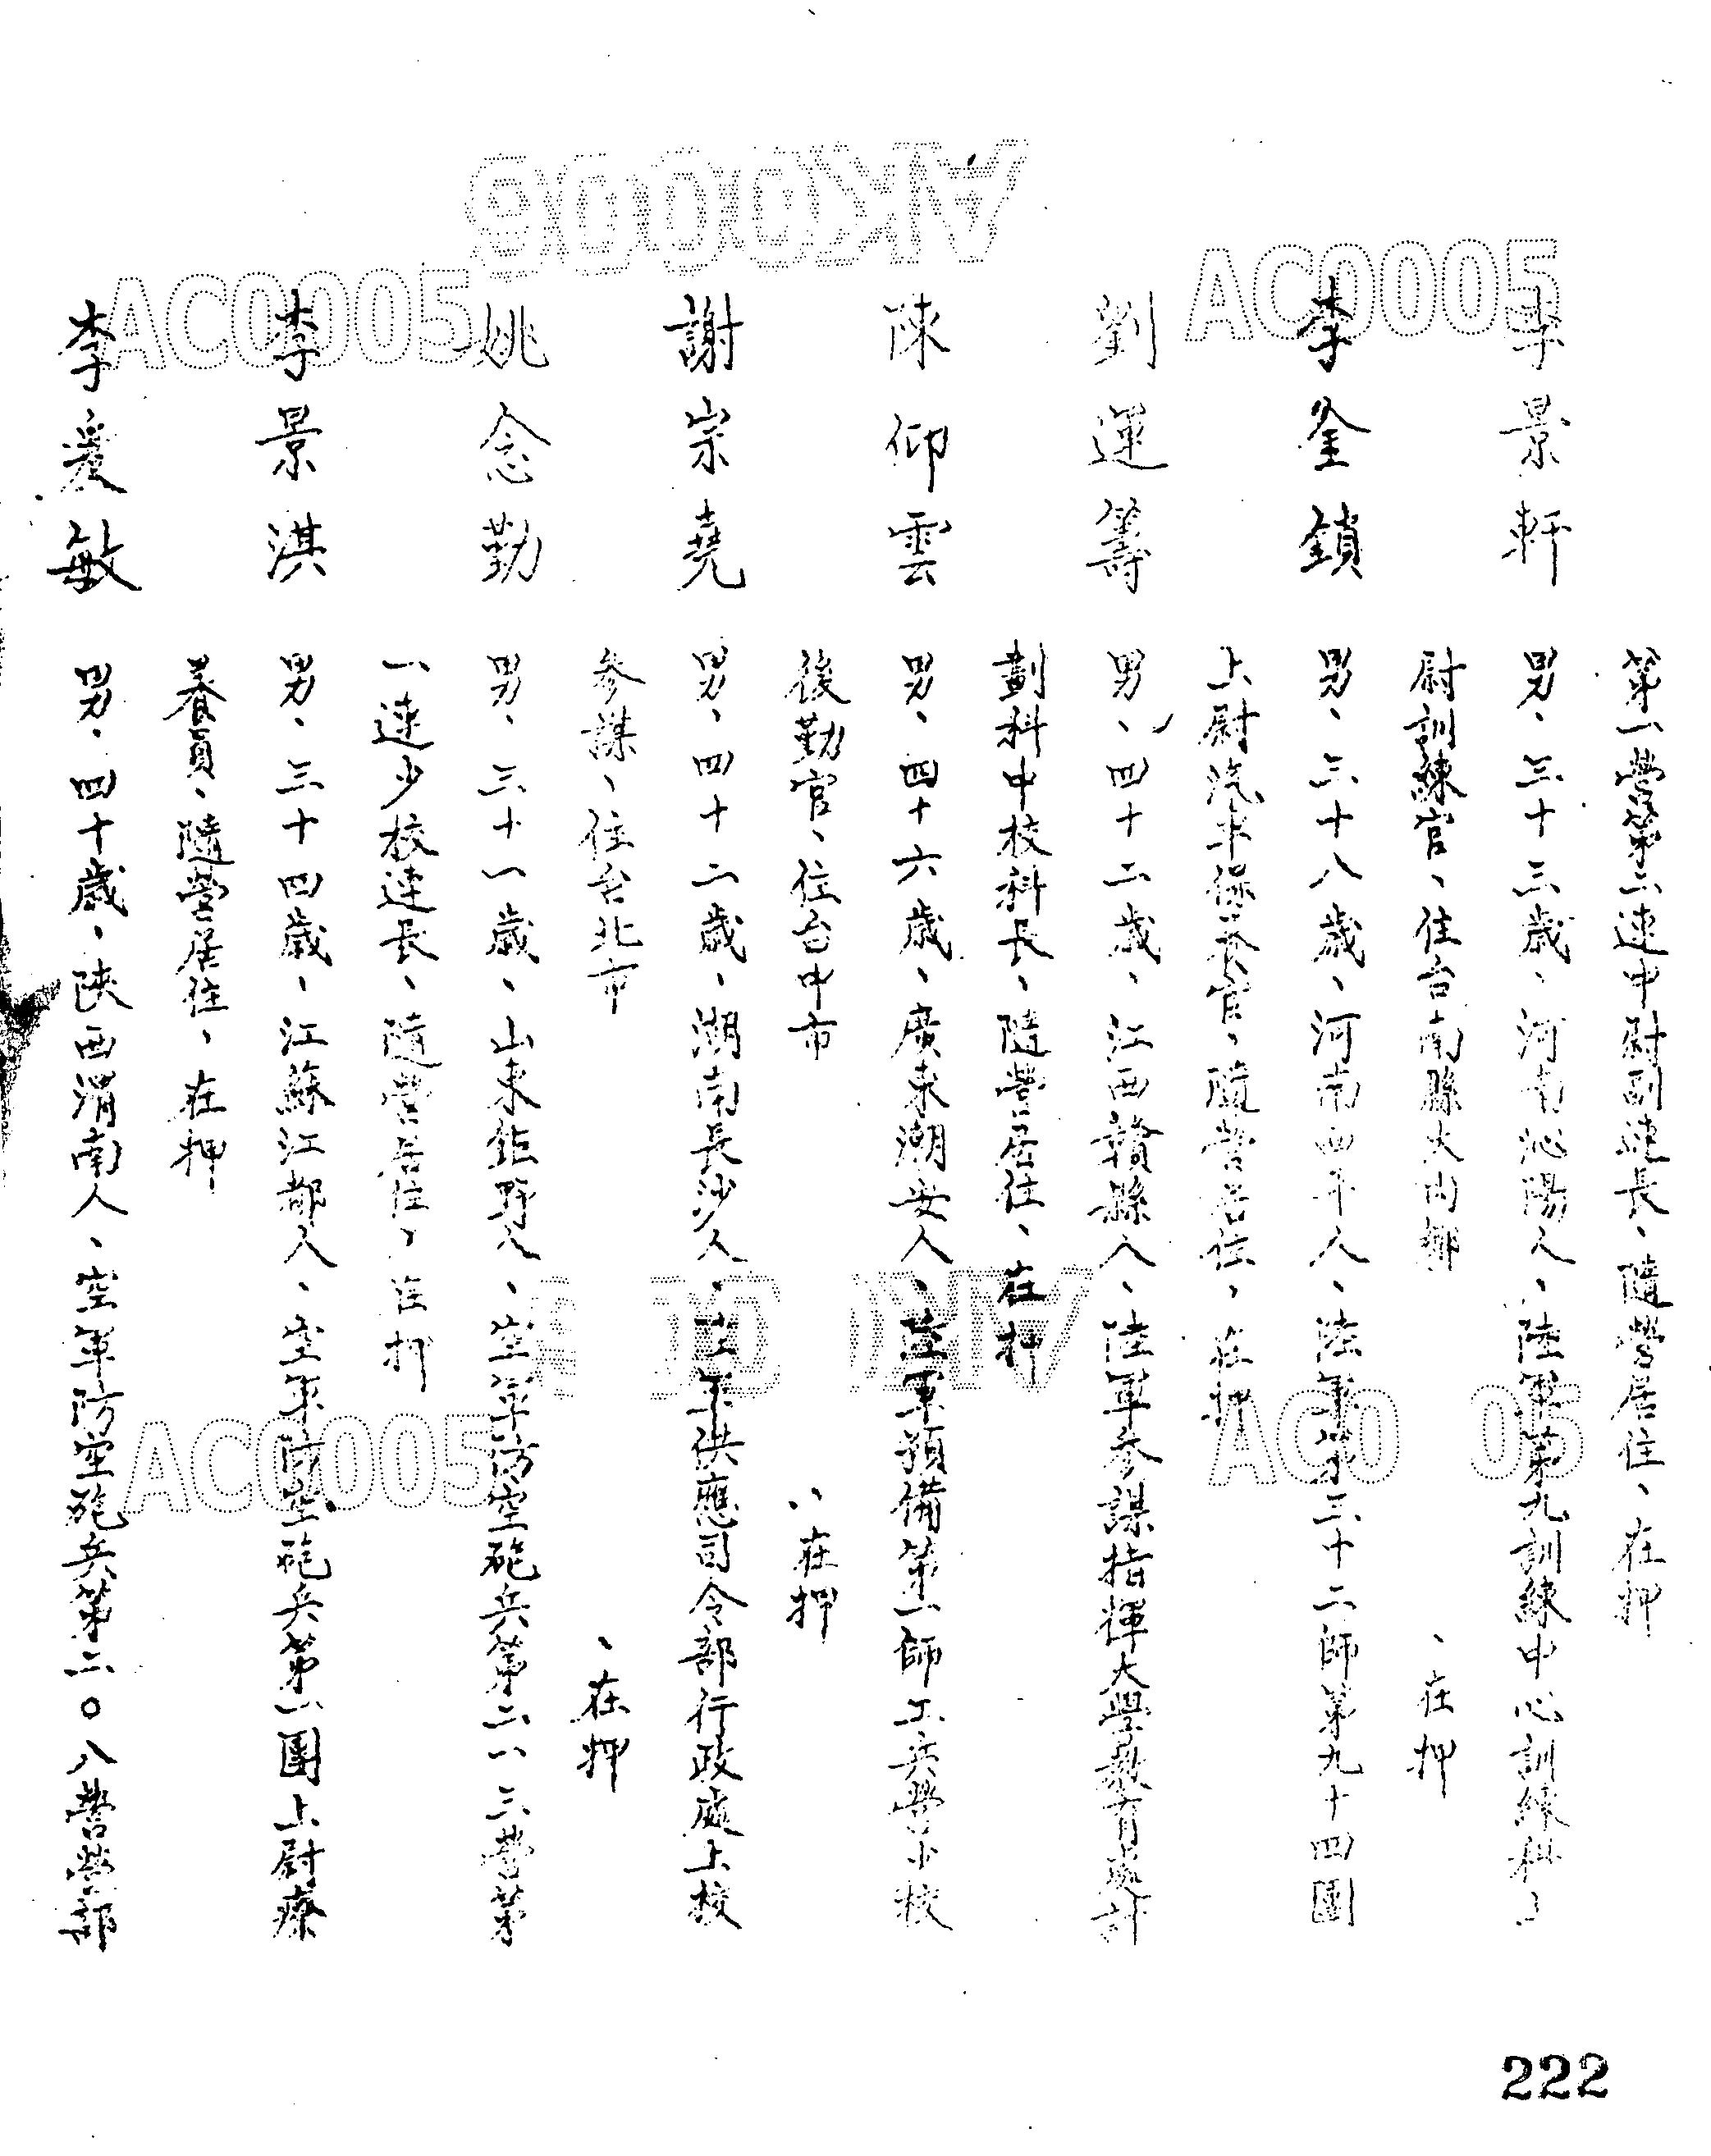 第一營第二連中尉副連長、隨營居住、在押
李景軒 男、三十三歲、河南沁陽人、陸軍第九訓練中心訓練科上
尉訓練官、住台南縣大內鄉、在押
李奎鎖 男、三十八歲、河南西平人、陸軍第三十二師第九十四團
上尉汽車保養官、隨營居住、在押
劉運籌 男、四十二歲、江西贛縣人、陸軍參謀指揮大學教育處計
劃科中校科長、隨營居住、在押
陳仰雲 男、四十六歲、廣東潮安人、陸軍預備第一師工兵營少校
後勤官、住台中市、在押
謝宗堯 男、四十二歲、湖南長沙人、陸軍供應司令部行政處上校
參謀、住台北市、在押
姚念勤 男、三十一歲、山東鉅野人、空軍防空砲兵第二一三營第
一連少校連長、隨營居住、在押
李景淇 男、三十四歲、江蘇江都人、空軍防空砲兵第一團上尉療
養員、隨營居住、在押
李愛敏 男、四十歲、陝西渭南人、空軍防空砲兵第二〇八營營部
AK0006
AC0005
AC0005
AC0005
222